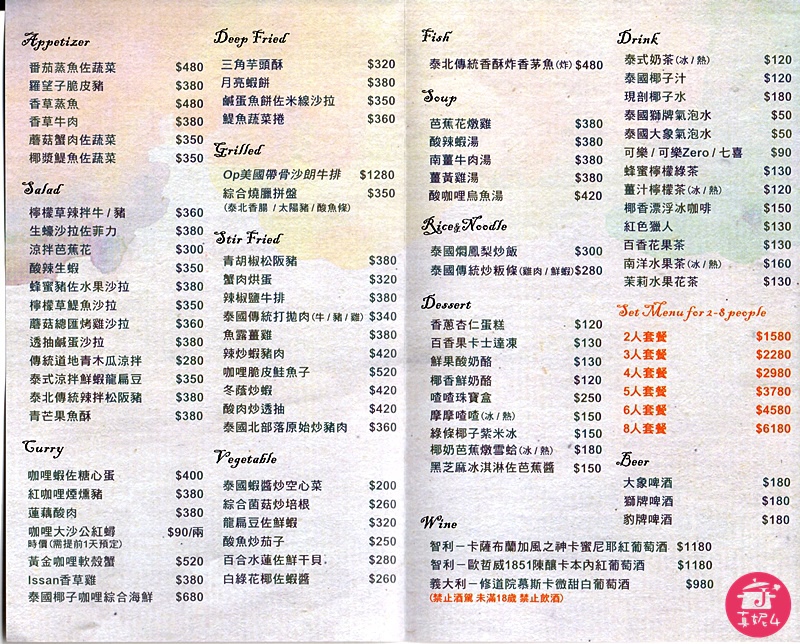 Appetizer
番茄蒸魚佐蔬菜 $480
羅望子脆皮豬 $380
香草蒸魚 $480
香草牛肉 $380
蘑菇蟹肉佐蔬菜 $350
椰漿鯷魚佐蔬菜 $350
Salad
檸檬草辣拌牛 / 豬 $360
生蠔沙拉佐菲力 $380
涼拌芭蕉花 $300
酸辣生蝦 $350
蜂蜜豬佐水果沙拉 $380
檸檬草鯷魚沙拉 $350
蘑菇總匯烤雞沙拉 $360
透抽鹹蛋沙拉 $380
傳統道地青木瓜涼拌 $280
泰式涼拌鮮蝦龍扁豆 $350
泰北傳統辣拌松阪豬 $380
青芒果魚酥 $380
Curry
咖哩蝦佐糖心蛋 $400
紅咖哩煙燻豬 $380
蓮藕酸肉 $380
咖哩大沙公紅蟳 $90/兩
時價(需提前1天預定)
黃金咖哩軟殼蟹 $520
Issan香草雞 $380
泰國椰子咖哩綜合海鮮 $680
Deep Fried
三角芋頭酥 $320
月亮蝦餅 $380
鹹蛋魚餅佐米線沙拉 $350
鯷魚蔬菜捲 $360
Grilled
Op美國帶骨沙朗牛排 $1280
綜合燒臘拼盤 $350
(泰北香腸 / 太陽豬 / 酸魚條)
Stir Fried
青胡椒松阪豬 $380
蟹肉烘蛋 $320
辣椒鹽牛排 $380
泰國傳統打拋肉(牛 / 豬 / 雞) $340
魚露薑雞 $380
辣炒蝦豬肉 $420
咖哩脆皮鮭魚子 $520
冬蔭炒蝦 $420
酸肉炒透抽 $420
泰國北部落原始炒豬肉 $360
Vegetable
泰國蝦醬炒空心菜 $200
綜合菌菇炒培根 $260
龍扁豆佐鮮蝦 $320
酸魚炒茄子 $250
百合水蓮佐鮮干貝 $280
白綠花椰佐蝦醬 $260
Fish
泰北傳統香酥炸香茅魚(炸) $480
Soup
芭蕉花燉雞 $380
酸辣蝦湯 $380
南薑牛肉湯 $380
薑黃雞湯 $380
酸咖哩烏魚湯 $420
Rice&Noodle
泰國燜鳳梨炒飯 $300
泰國傳統炒粄條(雞肉 / 鮮蝦) $280
Dessert
香蔥杏仁蛋糕 $120
百香果卡士達凍 $130
鮮果酸奶酪 $130
椰香鮮奶酪 $120
喳喳珠寶盒 $250
摩摩喳喳(冰 / 熱) $150
綠條椰子紫米冰 $150
椰奶芭蕉燉雪蛤(冰 / 熱) $180
黑芝麻冰淇淋佐芭蕉醬 $150
Wine
智利－卡薩布蘭加風之神卡蜜尼耶紅葡萄酒 $1180
智利－歐哲威1851陳釀卡本內紅葡萄酒 $1180
義大利－修道院慕斯卡微甜白葡萄酒 $980
(禁止酒駕 未滿18歲 禁止飲酒)
Drink
泰式奶茶(冰 / 熱) $120
泰國椰子汁 $120
現剖椰子水 $180
泰國獅牌氣泡水 $50
泰國大象氣泡水 $50
可樂 / 可樂Zero / 七喜 $90
蜂蜜檸檬綠茶 $130
薑汁檸檬茶(冰 / 熱) $120
椰香漂浮冰咖啡 $150
紅色獵人 $130
百香花果茶 $130
南洋水果茶(冰 / 熱) $160
茉莉水果花茶 $130
Set Menu for 2-8 people
2人套餐 $1580
3人套餐 $2280
4人套餐 $2980
5人套餐 $3780
6人套餐 $4580
8人套餐 $6180
Beer
大象啤酒 $180
獅牌啤酒 $180
豹牌啤酒 $180
真妮4